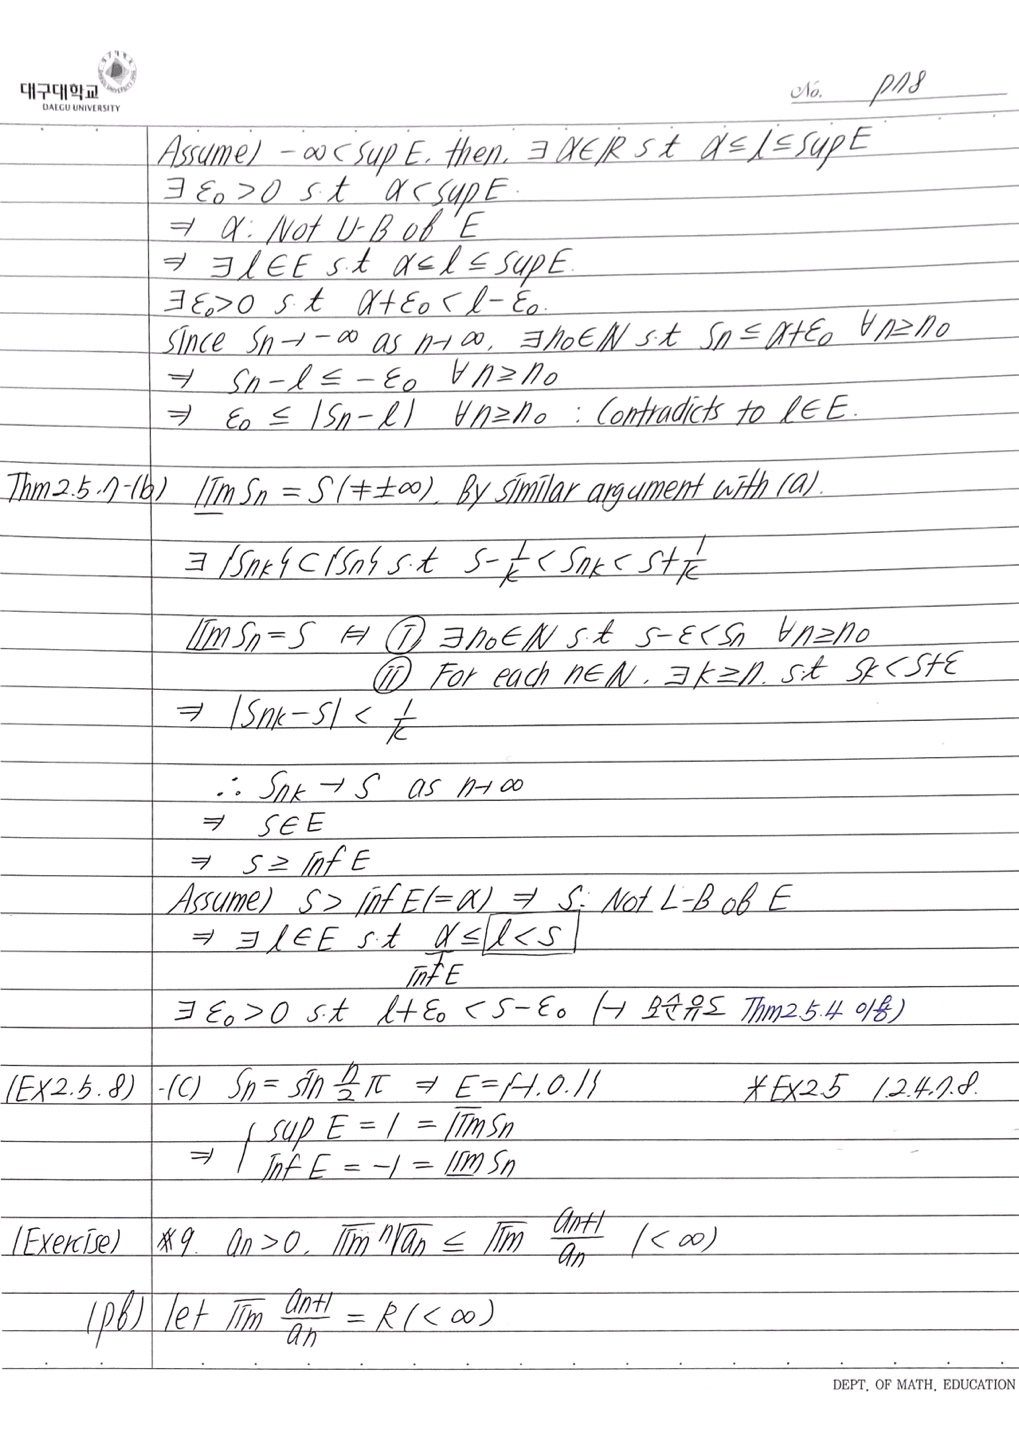 대구대학교
DAEGU UNIVERSITY
No. p78
Assume) -∞ < sup E. then. ∃ α∈ℝ s.t α ≤ l ≤ sup E
∃ ε₀ > 0 s.t α < sup E.
⇒ α: Not U-B of E
⇒ ∃ l ∈ E s.t α ≤ l ≤ sup E.
∃ ε₀>0 s.t α+ε₀ < l-ε₀.
since Sn → -∞ as n→∞, ∃n₀∈ℕ s.t Sn ≤ α+ε₀ ∀n≥n₀
⇒ Sn-l ≤ -ε₀ ∀n≥n₀
⇒ ε₀ ≤ |Sn-l| ∀n≥n₀ : Contradicts to l∈E.
Thm2.5.7-(b) l̲i̲m̲ Sn = S (≠±∞). By similar argument with (a).
∃ {Snk} ⊂ {Sn} s.t S-1/k < Snk < S+1/k
l̲i̲m̲ Sn = S ⇔ ⓘ ∃n₀∈ℕ s.t S-ε<Sn ∀n≥n₀
ⓘⓘ For each n∈ℕ, ∃k≥n. s.t Sk<S+ε
⇒ |Snk-S| < 1/k
∴ Snk → S as n→∞
⇒ S∈E
⇒ S ≥ inf E
Assume) S > inf E(=α) ⇒ S: Not L-B of E
⇒ ∃ l∈E s.t α ≤ l < S
inf E
∃ ε₀>0 s.t l+ε₀ < S-ε₀ (→ 모순유도 Thm2.5.4 이용)
(EX2.5.8) -(c) Sn = sin n/2 π ⇒ E={-1.0.1} *EX2.5 1.2.4.7.8.
⇒ { sup E = 1 = l̅i̅m̅ Sn
inf E = -1 = l̲i̲m̲ Sn
(Exercise) *9. an>0, l̅i̅m̅ ⁿ√an ≤ l̅i̅m̅ an+1/an (<∞)
(pf) let l̅i̅m̅ an+1/an = R(<∞)
DEPT. OF MATH. EDUCATION